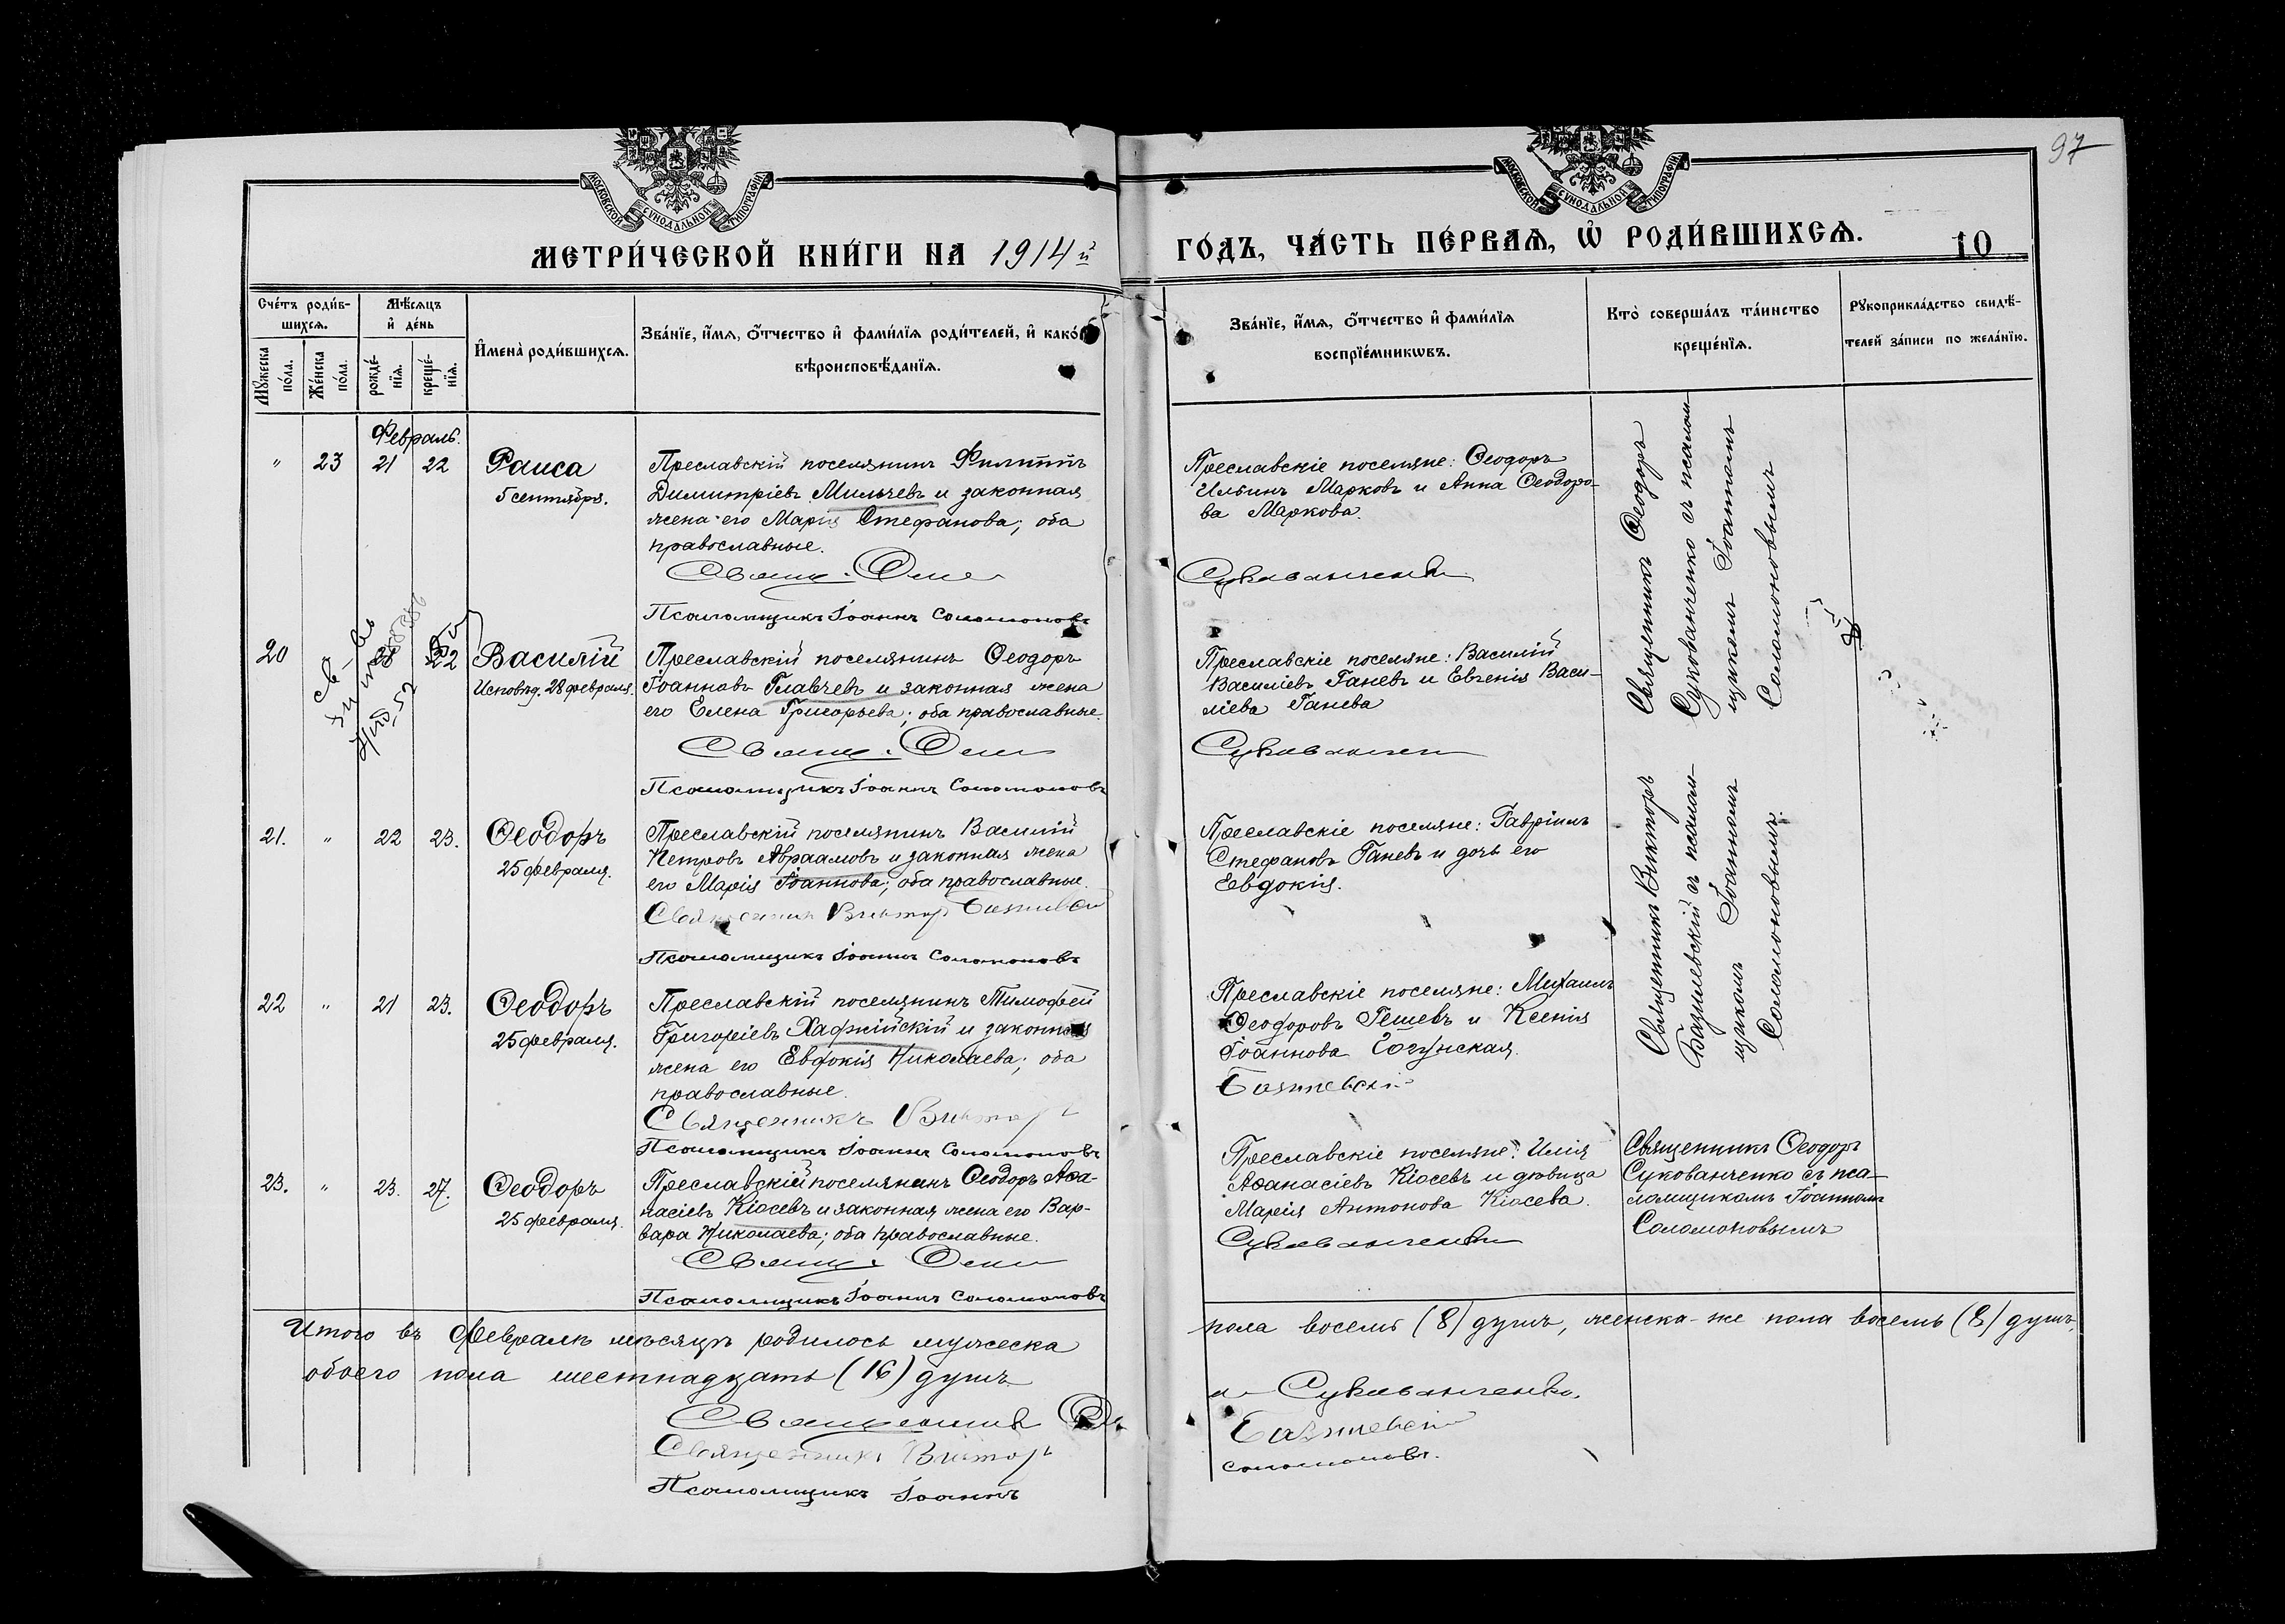 97
МОСКОВСКОЙ СУНОДАЛЬНОЙ ТИПОГРАФІИ
МОСКОВСКОЙ СУНОДАЛЬНОЙ ТИПОГРАФІИ
МЕТРИ́ЧЕСКОЙ КНИ́ГИ НА 1914й
ГО́ДЪ, ЧА́СТЬ ПЕ́РВАѦ, Ѽ РОДИ́ВШИХСѦ.
10
Сче́тъ роди́в-
шихсѧ.
Мꙋ́жеска по́ла.
Же́нска по́ла.
Мѣ́сѧцъ
и҆ де́нь
рожде́-
нїѧ.
креще́-
нїѧ.
И҆мена̀ роди́вшихсѧ.
Зва́нїе, и҆́мѧ, ѻ҆́тчество и҆ фами́лїѧ роди́телей, и҆ како́й
вѣроисповѣ́данїѧ.
Зва́нїе, и҆́мѧ, ѻ҆́тчество и҆ фами́лїѧ
воспрїе́мникѡвъ.
Кто̀ соверша́лъ та́инство
креще́нїѧ.
Рꙋкоприкла́дство свидѣ́-
телей за́писи по жела́нїю.
Февраль.
" 23 21 22
Раиса
5 сентября.
Преславскій поселянинъ Филиппъ
Димитріевъ Мильчевъ и законная
жена его Марія Стефанова; оба
православные.
Псаломщикъ Іоаннъ Соломоновъ
Преславскіе поселяне: Ѳеодоръ
Ильинъ Марковъ и Анна Ѳеодоро-
ва Маркова.
Сукованченко
Священникъ Ѳеодоръ
Сукованченко съ псалом-
щикомъ Іоанномъ
Соломоновымъ
20 22
Василій
Исповѣд. 28 февраля.
Преславскій поселянинъ Ѳеодоръ
Іоанновъ Главчевъ и законная жена
его Елена Григорьева; оба православные.
Псаломщикъ Іоаннъ Соломоновъ
Преславскіе поселяне: Василій
Василіевъ Ганевъ и Евгенія Васи-
ліева Ганева
Сукованчен
21. " 22 23.
Ѳеодоръ
25 февраля.
Преславскій поселянинъ Василій
Петровъ Авраамовъ и законная жена
его Марія Іоаннова; оба православные.
Священникъ Викторъ Базилевскій
Псаломщикъ Іоаннъ Соломоновъ
Преславскіе поселяне: Гавріилъ
Стефановъ Ганевъ и дочь его
Евдокія.
Священникъ Викторъ
Базилевскій съ псалом-
щикомъ Іоанномъ
Соломоновымъ.
22 " 21 23.
Ѳеодоръ
25 февраля.
Преславскій поселянинъ Тимофей
Григоріевъ Хаджійскій и законная
жена его Евдокія Николаева; оба
православные.
Священникъ Викторъ
Псаломщикъ Іоаннъ Соломоновъ
Преславскіе поселяне: Михаилъ
Ѳеодоровъ Гешевъ и Ксенія
Іоаннова
Базилевскій
23. " 23. 27.
Ѳеодоръ
25 февраля.
Преславскій поселянинъ Ѳеодоръ Аѳа-
насіевъ Кіосевъ и законная жена его Вар-
вара Николаева; оба православные.
Псаломщикъ Іоаннъ Соломоновъ
Преславскіе поселяне: Илія
Аѳанасіевъ Кіосевъ и дѣвица
Марія Антонова Кіосева.
Сукованченко
Священникъ Ѳеодоръ
Сукованченко съ пса-
ломщикомъ Іоанномъ
Соломоновымъ
Итого въ февралѣ мѣсяцѣ родилось мужеска
пола восемь (8) душъ, женска-же пола восемь (8) душъ,
обоего пола шестнадцать (16) душъ.
Священникъ
Сукованченко.
Священникъ Викторъ
Базилевскій
Псаломщикъ Іоаннъ
Соломоновъ.